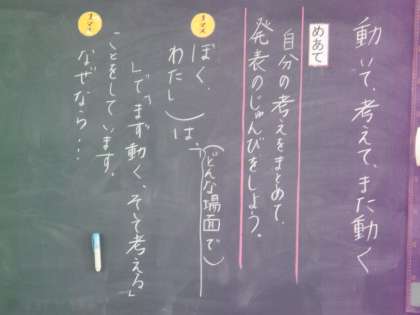 動いて、考えて、また動く
めあて
自分の考えをまとめて、
発表のじゅんびをしよう。
ぼく、
わたし
は、
(どんな場面で)
」で「まず動く、そして考える」
ことをしています。
なぜなら・・